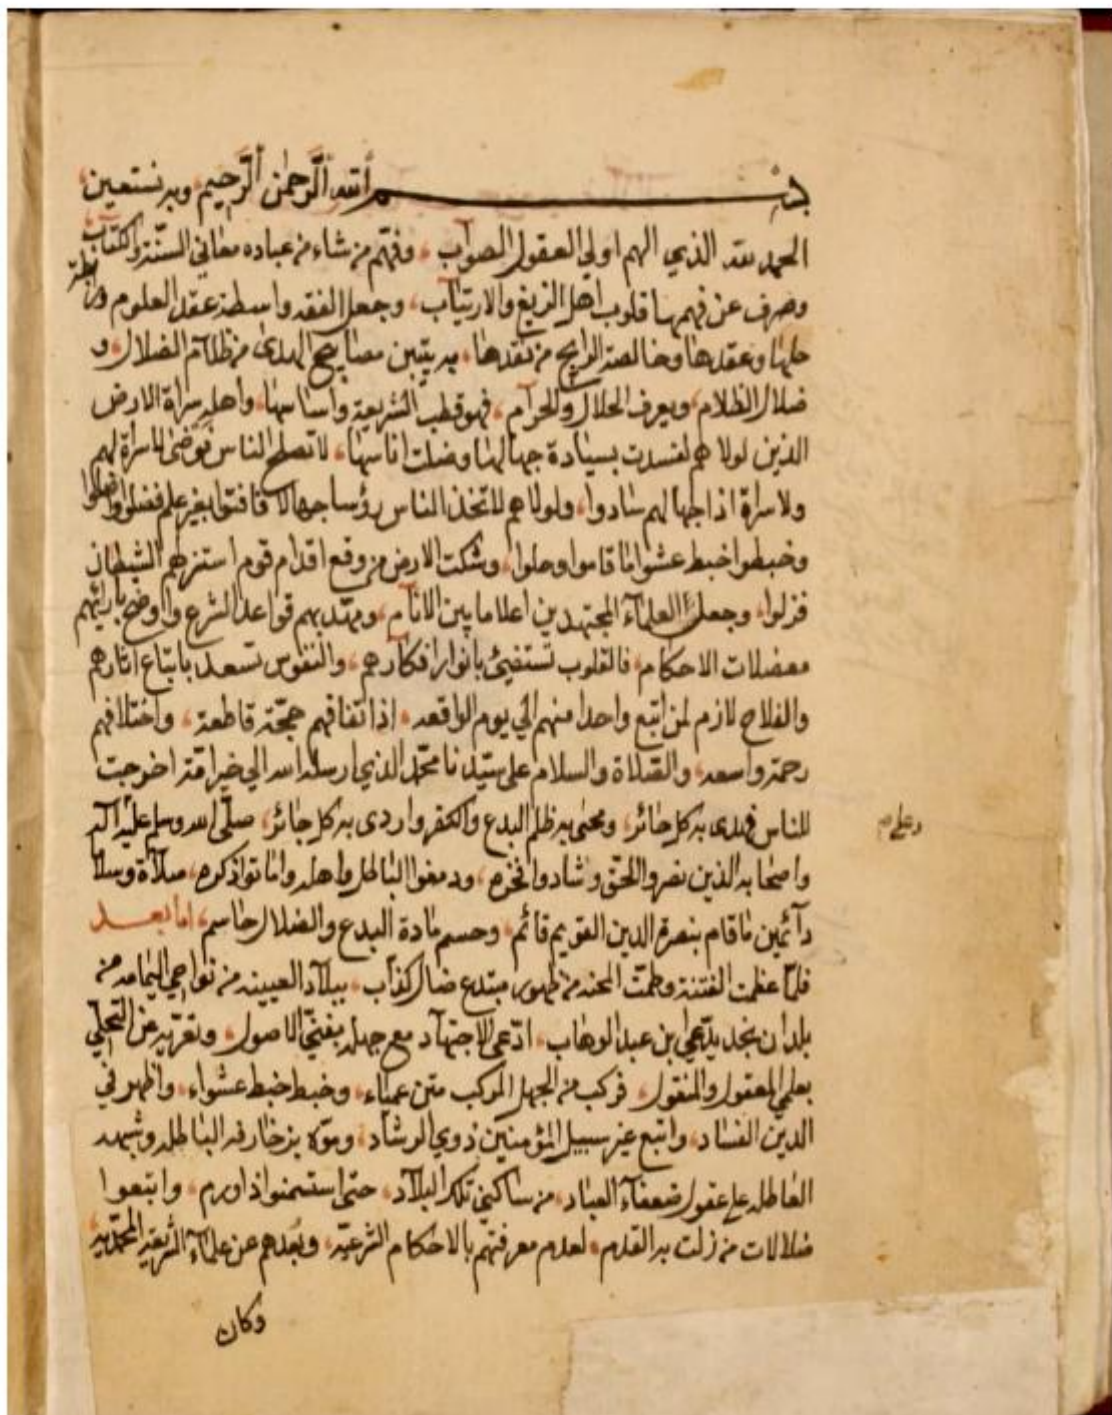 بسم الله الرحمن الرحيم وبه نستعين
الحمد لله الذي الهم اولي العقول الصواب، وفهّم من شاء من عباده معاني السنّة والكتاب،
وصرف عن فهمها قلوب اهل الزيغ والارتياب، وجعل الفقه واسطة عقد العلوم
حلها وعقدها وخالصة الرايج من نقدها، به يتبين مصابيح الهدى من ظلام الضلال، و
ضلال الظلام، ويعرف الحلال والحرام، فهو قطب الشريعة واساسها، واهله سراة الارض
الذين لولاهم لفسدت بسيادة جهالها وضلت اناسها، لا تصلح الناس فوضى لا سراة لهم
ولا سراة اذا جهالهم سادوا، ولولاهم لاتخذ الناس رؤسا جهالا فافتوا بغير علم فضلوا واضلوا
وخبطوا خبط عشوا ما قاموا وحلوا، وشكت الارض من وقع اقدام قوم استزلهم الشيطان
فزلوا، وجعل العلمآء المجتهدين اعلاما بين الانآم، ومهّد بهم قواعد الشرع واوضح بآرائهم
معضلات الاحكام، فالقلوب تستضيئ بانوار افكارهم، والنفوس تسعد باتباع اثارهم
والفلاح لازم لمن اتبع واحدا منهم الي يوم الواقعه، اذ اتفاقهم حجّة قاطعة، واختلافهم
رحمة واسعه، والصّلاة والسلام على سيّدنا محمّد الذي ارسله الله الي خير امّة اخرجت
للناس فهدى به كل حائر، ومحى به ظلم البدع والكفر واردى به كل جائر، صلّى الله وسلم عليه آله
وعلى
واصحابه الذين نصروا الحق وشادوا فخره، ودمغوا الباطل واهله واماتوا ذكره، صلآة وسلاما
دآئمين ما قام بنصرة الدين القويم قائم، وحسم مادة البدع والضلال حاسم، اما بعد
فلمّا عظمت الفتنة وطمّت المحنه من ظهور مبتدع ضال كذّاب، ببلآد العيينه من نواحي اليمامه من
بلدان نجد يدّعى ابن عبد الوهاب، ادّعى الاجتهآد مع جهله بفنّي الاصول، وتعرّيه عن التحلّي
بعلمي المعقول والمنقول، فركب من الجهل المركب متن عمياء، وخبط خبط عشواء، واظهر في
الدين الفساد، واتبع غير سبيل المؤمنين ذوي الرشاد، وموّه بزخارفه الباطله وشبهه
العاطله على عقول ضعفآء العباد، من ساكني تلك البلآد، حتى استسمنوا ذا ورم، واتبعوا
ضلالات من زلت به القدم، لعدم معرفتهم بالاحكام الشرعيّه، وبُعدهم عن علمآء الشريعة المحمّديه،
وكان